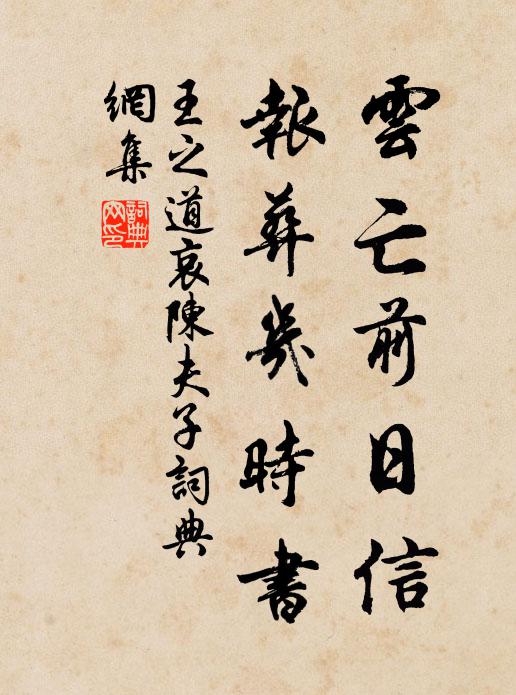 雲亡前日信
報葬幾時書
王之道哀陳夫子詞典
網集
詞典
網印